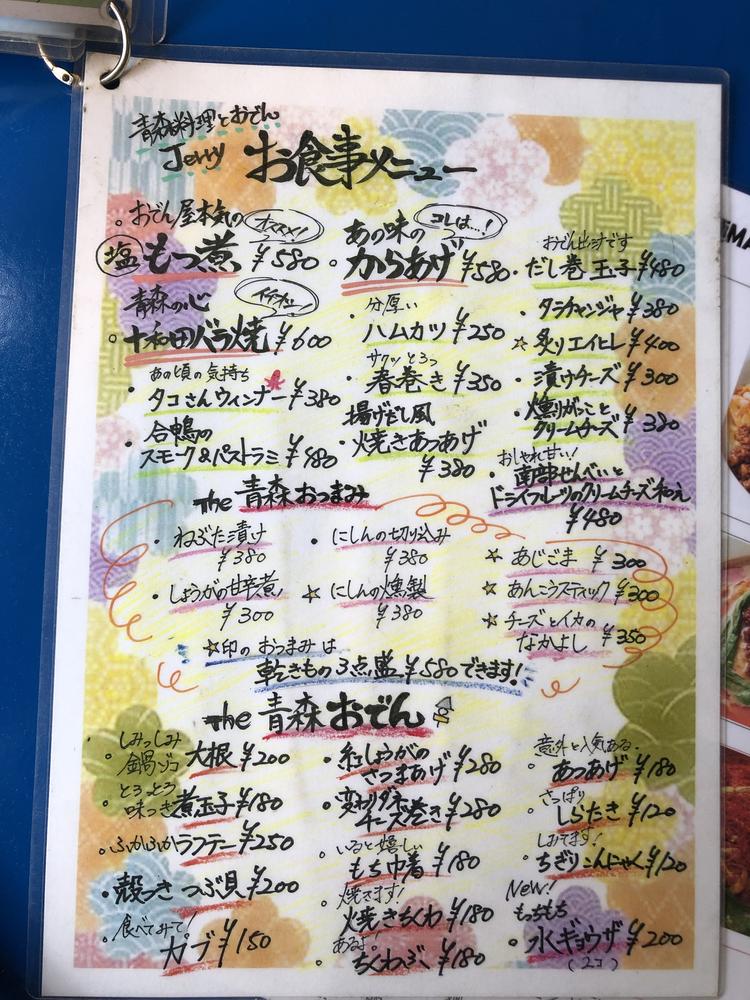 青森料理とおでん
Jerry お食事メニュー
・おでん屋本気の オススメ!
塩 もつ煮 ¥580
青森の心 イチオシ!
・十和田バラ焼 ¥600
あの頃の気持ち
・タコさんウィンナー ¥380
・合鴨の
スモーク&パストラミ ¥480
あの味の コレは…!
・からあげ ¥580
分厚い
・ハムカツ ¥250
サクッとろっ
・春巻き ¥350
揚げだし風
・焼きあつあげ
¥380
おでん出汁です
・だし巻玉子 ¥480
・タラチャンジャ ¥380
☆炙りエイヒレ ¥400
・漬けチーズ ¥300
・燻りがっこと
クリームチーズ ¥380
おしゃれ甘い!
・南部せんべいと
ドライフルーツのクリームチーズ和え
¥480
the 青森おつまみ
・ねぶた漬け
¥380
・しょうがの甘辛煮
¥300
・にしんの切り込み
¥380
☆にしんの燻製
¥380
☆あじごま ¥300
☆あんこうスティック ¥300
☆チーズとイカの
なかよし ¥350
☆印のおつまみは
乾きもの3点盛 ¥580できます!
the 青森おでん
しみっしみ
・鍋ゾコ 大根 ¥200
とろっとろ
・味つき 煮玉子 ¥180
・ふかふか ラフテー ¥250
・殻つき つぶ貝 ¥200
食べてみて!
・カブ ¥150
・紅しょうがの
さつまあげ ¥280
・変わりダネ
チーズ巻き ¥280
いると嬉しい
・もち巾着 ¥180
焼きます!
・焼きちくわ ¥180
あるよ!
・ちくわぶ ¥180
意外と人気ある。
・あつあげ ¥180
さっぱり
・しらたき ¥120
しみてます!
・ちぎりこんにゃく ¥120
New!
もっちもち
・水ギョウザ ¥200
(2コ)